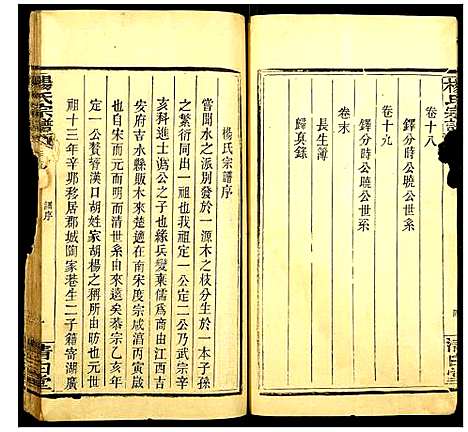 楊氏宗譜
卷十八
鐸分時公曉公世系
卷十九
鐸分時公曉公世系
卷末
長生簿
歸真錄
清白堂
楊氏宗譜序
嘗聞水之派別發於一源木之枝分生於一本子孫
之繁衍同出一祖也我定一公定二公乃武宗辛
亥科進士諱為公之子也緣兵燹棄儒為商由江西吉
安府吉水縣販木來楚適在南宋度宗咸淯丙梗化
也自宋而元而明而清世系由來遠矣恭宗乙亥年
定一公贅於漢口胡姓家胡楊之稱所由出也定
祖十三年辛卯移居郡城閻家巷生二子籍寄湖廣
楊氏宗譜
譜序
清白堂